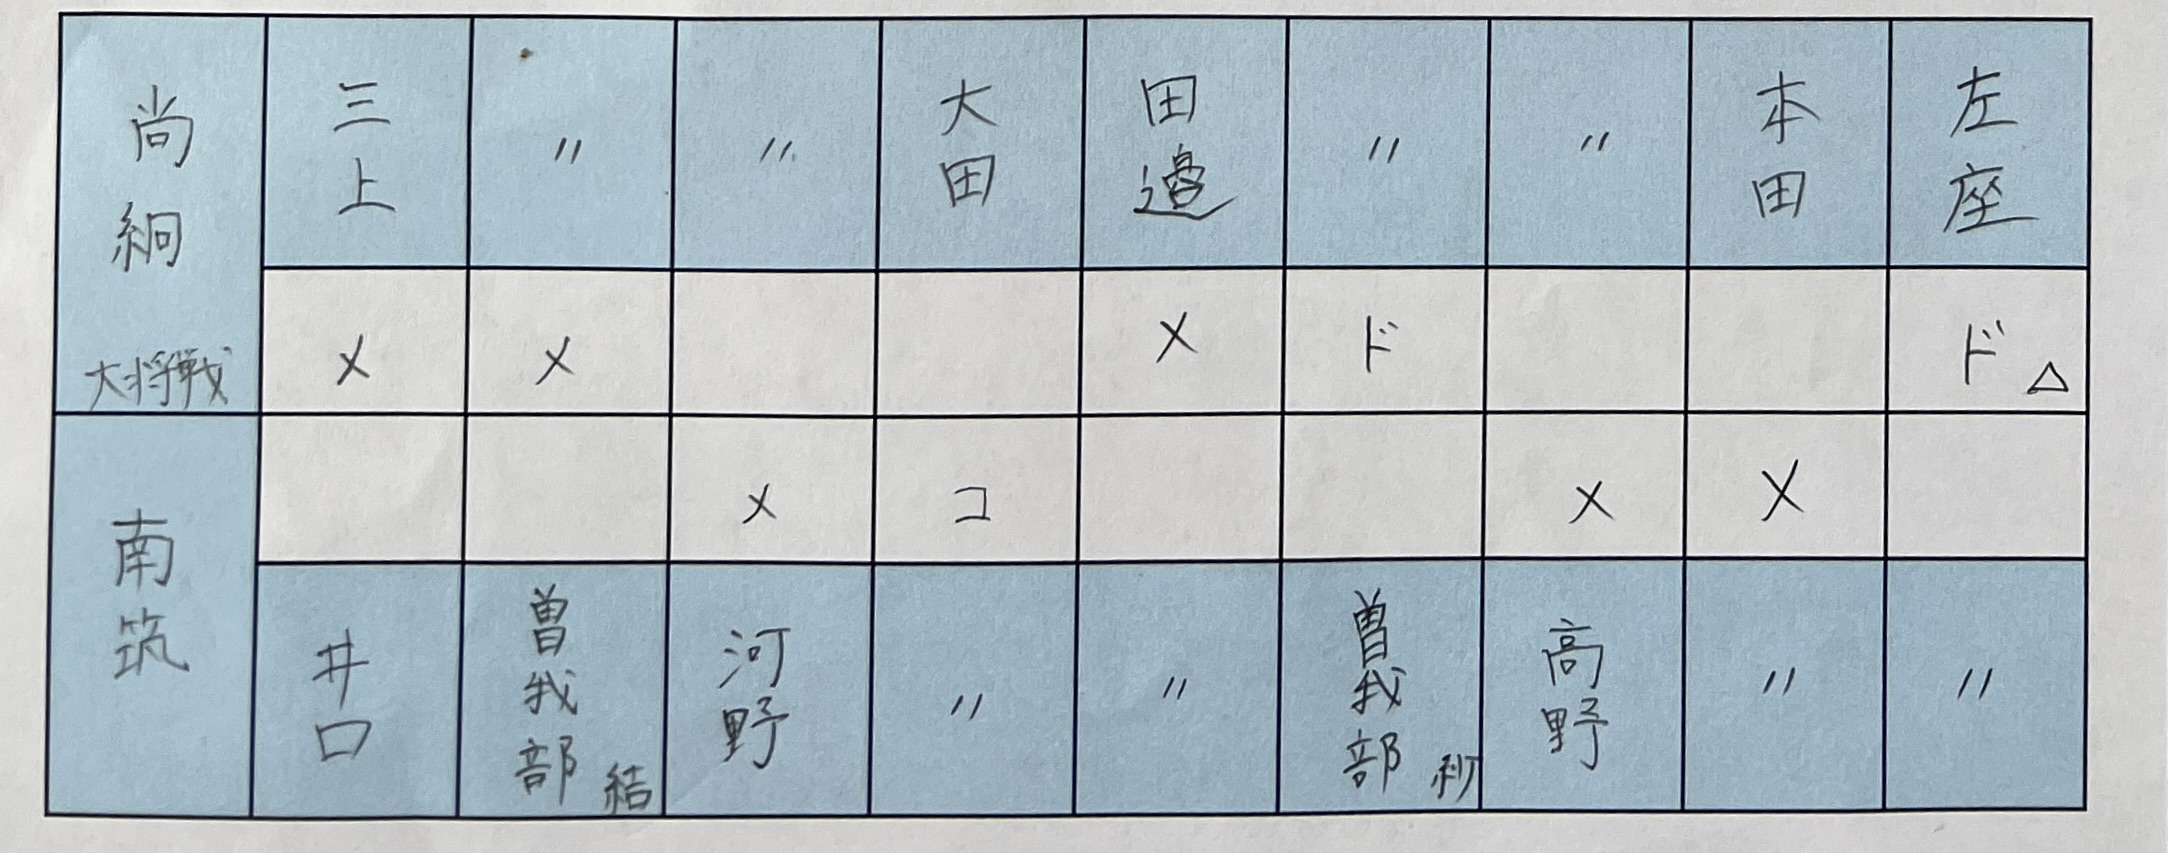 尚絅 三上 〃 〃 大田 田邉 〃 〃 本田 左座
大将戦 メ メ メ ド ド △
メ コ メ メ
南筑 井口 曽我部 結 河野 〃 〃 曽我部 高野 〃 〃